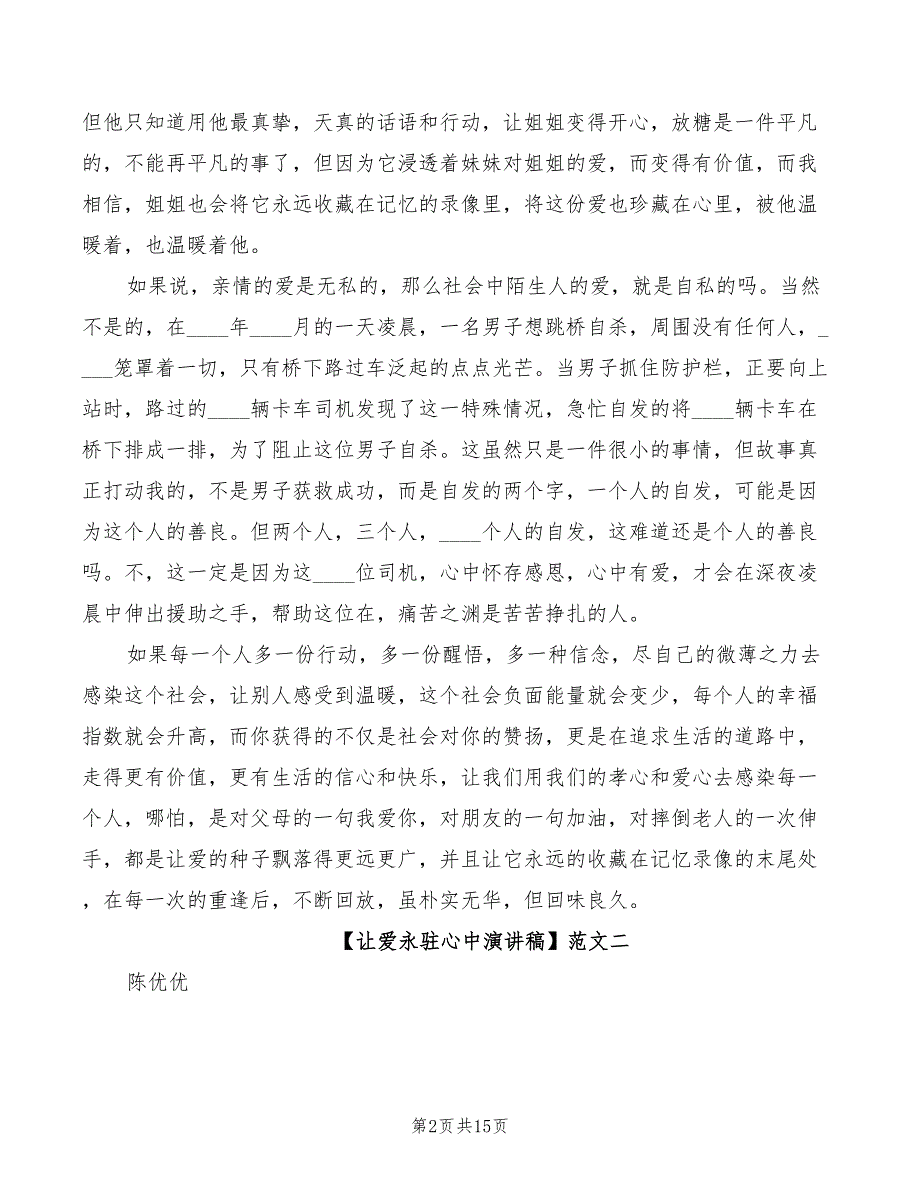 但他只知道用他最真挚，天真的话语和行动，让姐姐变得开心，放糖是一件平凡
的，不能再平凡的事了，但因为它浸透着妹妹对姐姐的爱，而变得有价值，而我
相信，姐姐也会将它永远收藏在记忆的录像里，将这份爱也珍藏在心里，被他温
暖着，也温暖着他。
如果说，亲情的爱是无私的，那么社会中陌生人的爱，就是自私的吗。当然
不是的，在____年____月的一天凌晨，一名男子想跳桥自杀，周围没有任何人，_
___笼罩着一切，只有桥下路过车泛起的点点光芒。当男子抓住防护栏，正要向上
站时，路过的____辆卡车司机发现了这一特殊情况，急忙自发的将____辆卡车在
桥下排成一排，为了阻止这位男子自杀。这虽然只是一件很小的事情，但故事真
正打动我的，不是男子获救成功，而是自发的两个字，一个人的自发，可能是因
为这个人的善良。但两个人，三个人，____个人的自发，这难道还是个人的善良
吗。不，这一定是因为这____位司机，心中怀存感恩，心中有爱，才会在深夜凌
晨中伸出援助之手，帮助这位在，痛苦之渊是苦苦挣扎的人。
如果每一个人多一份行动，多一份醒悟，多一种信念，尽自己的微薄之力去
感染这个社会，让别人感受到温暖，这个社会负面能量就会变少，每个人的幸福
指数就会升高，而你获得的不仅是社会对你的赞扬，更是在追求生活的道路中，
走得更有价值，更有生活的信心和快乐，让我们用我们的孝心和爱心去感染每一
个人，哪怕，是对父母的一句我爱你，对朋友的一句加油，对摔倒老人的一次伸
手，都是让爱的种子飘落得更远更广，并且让它永远的收藏在记忆录像的末尾处
，在每一次的重逢后，不断回放，虽朴实无华，但回味良久。
【让爱永驻心中演讲稿】范文二
陈优优
第2页共15页